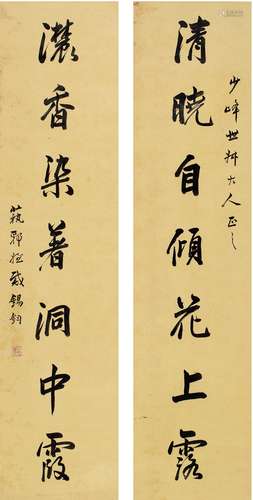 清曉自傾花上露
少峰世叔大人正之
濃香染著洞中霞
戴錫鈞